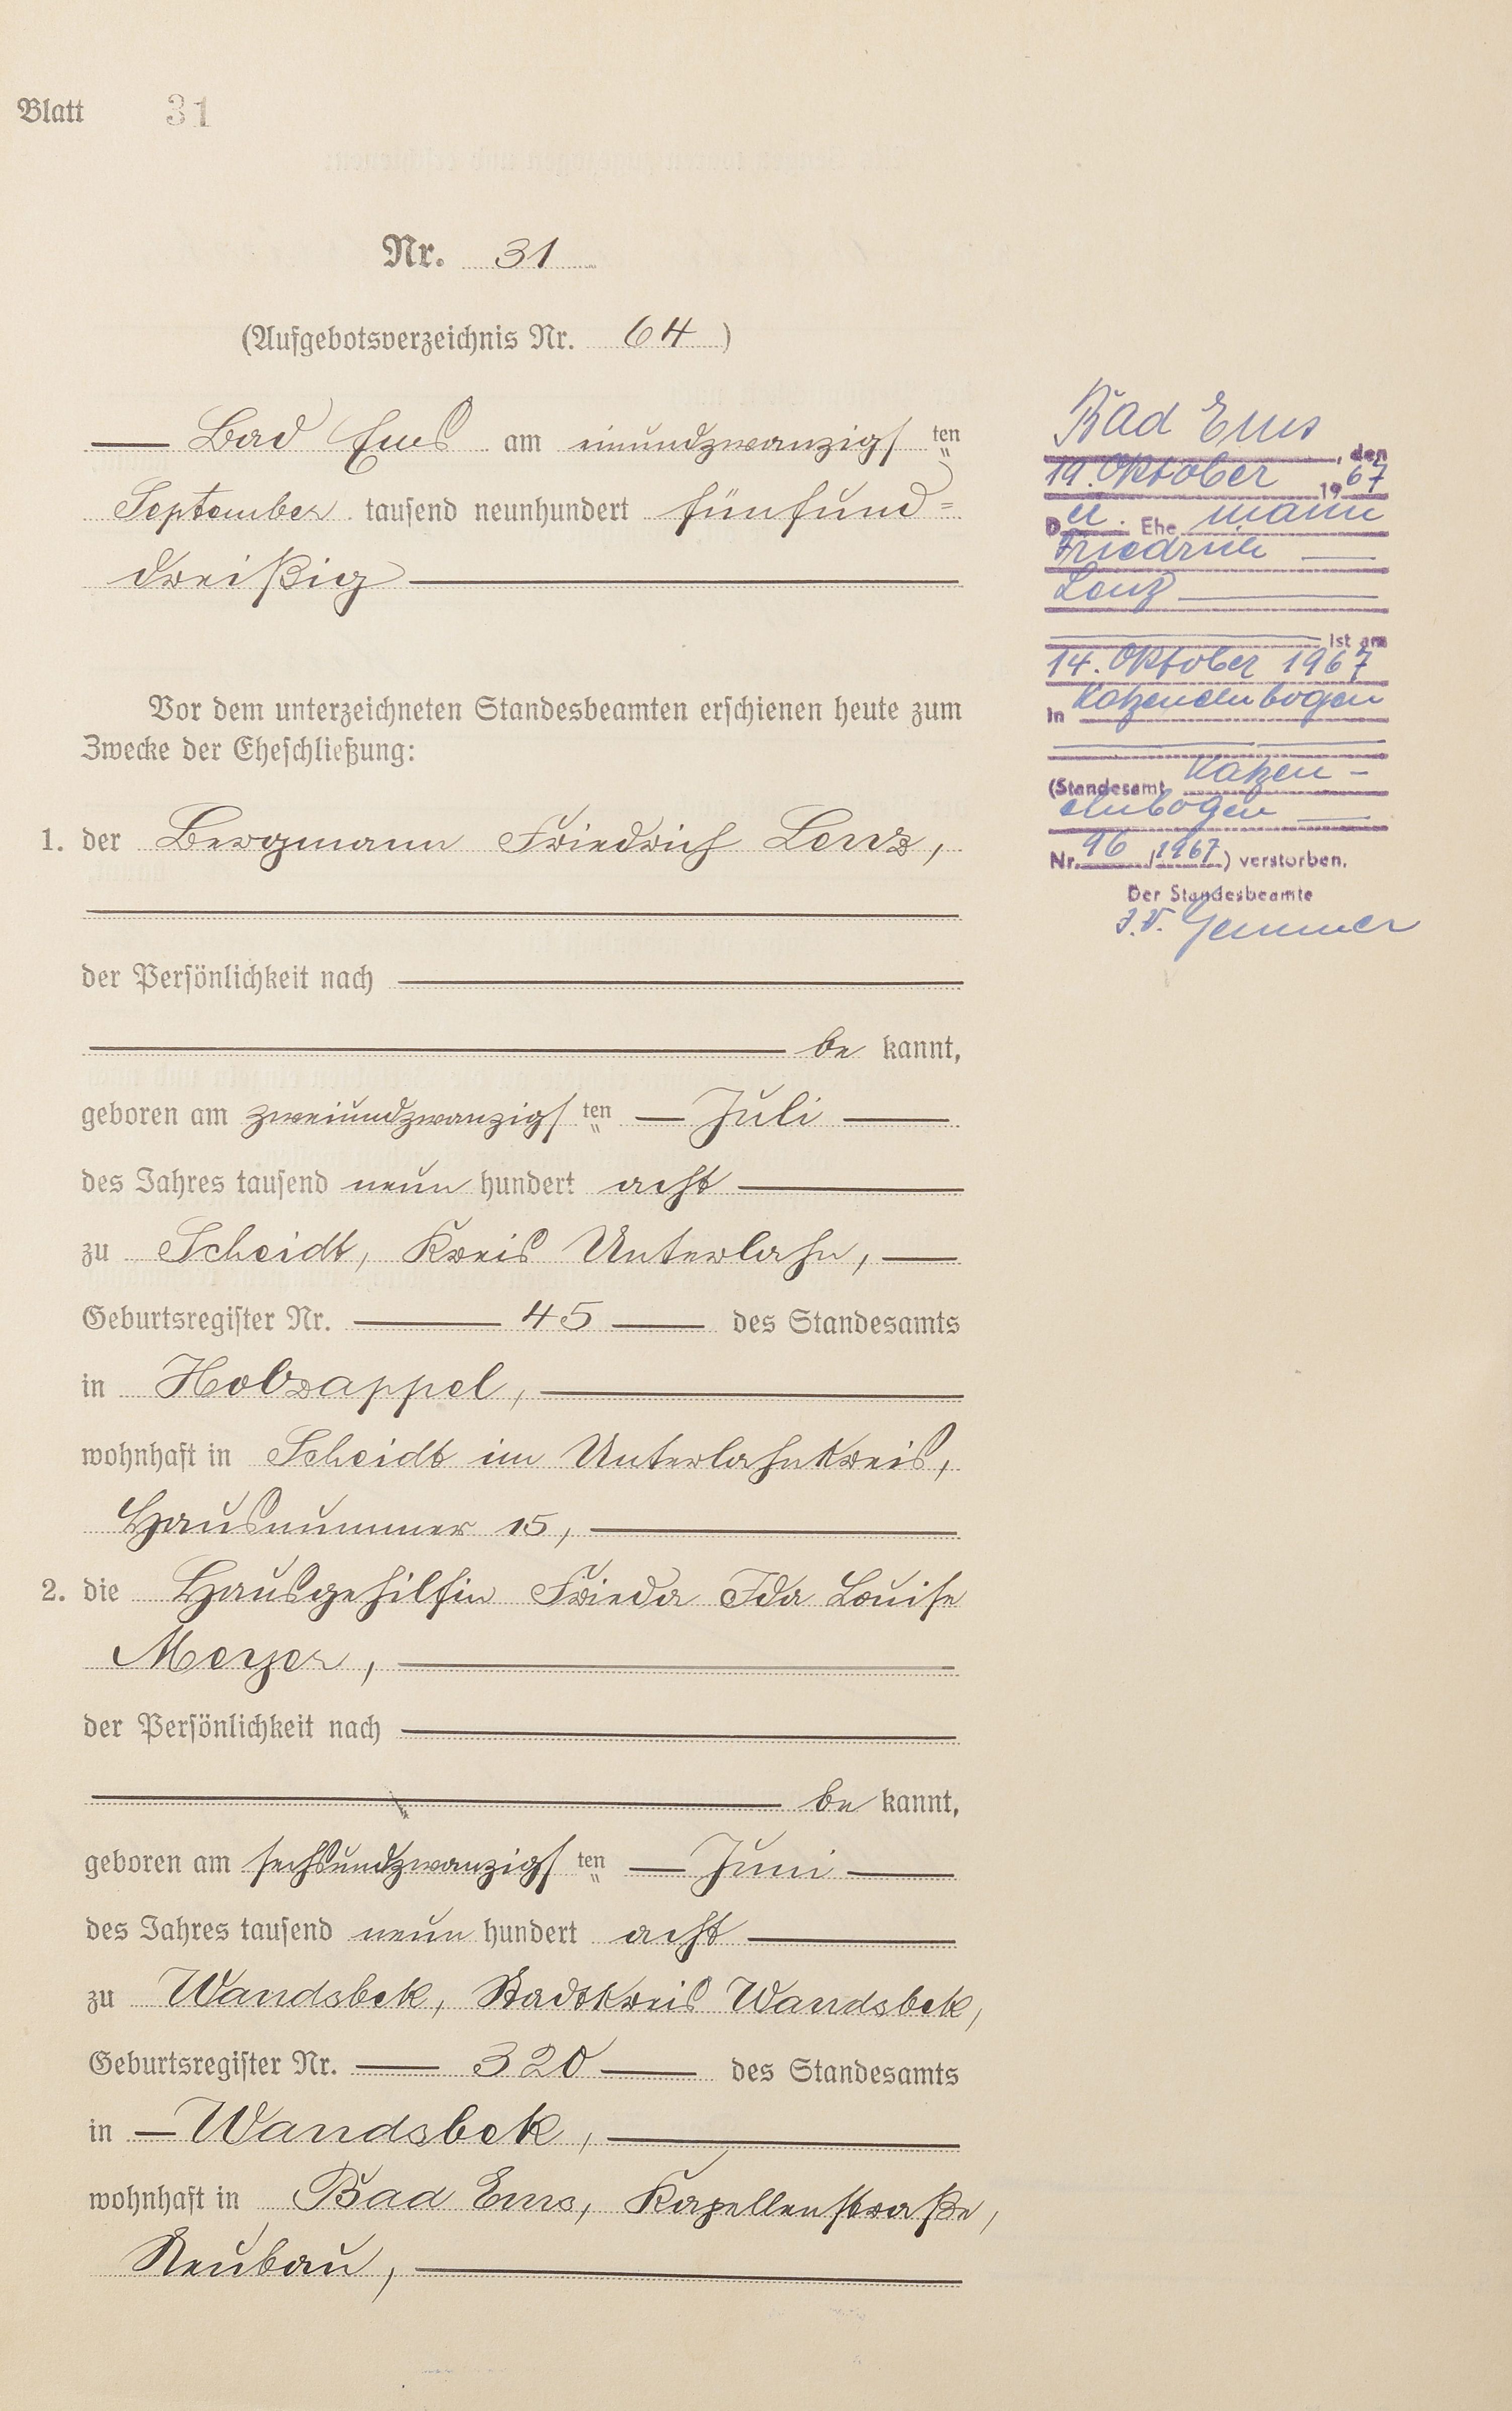 Blatt 31
Nr. 31
(Aufgebotsverzeichnis Nr. 64)
Bad Ems am einundzwanzigsten
September tausend neunhundert fünfund=
dreißig
Vor dem unterzeichneten Standesbeamten erschienen heute zum
Zwecke der Eheschließung:
1. der Bergmann Friedrich Lenz,
der Persönlichkeit nach
be kannt,
geboren am zweiundzwanzigsten Juli
des Jahres tausend neun hundert acht
zu Scheidt, Kreis Unterlahn,
Geburtsregister Nr. 45 des Standesamts
in Holzappel,
wohnhaft in Scheidt im Unterlahnkreis,
Hausnummer 15,
2. die Hausgehilfin Frieda Ida Louise
Meyer,
der Persönlichkeit nach
be kannt,
geboren am sechsundzwanzigsten Juni
des Jahres tausend neun hundert acht
zu Wandsbek, Stadtkreis Wandsbek,
Geburtsregister Nr. 320 des Standesamts
in Wandsbek,
wohnhaft in Bad Ems, Kapellenstraße,
Neubau,
Bad Ems, den
19. Oktober 1967
Der Ehemann
Friedrich
Lenz
ist am
14. Oktober 1967
in Katzenelnbogen
(Standesamt Katzen-
elnbogen
Nr. 96/1967) verstorben.
Der Standesbeamte
I.V. Gemmer